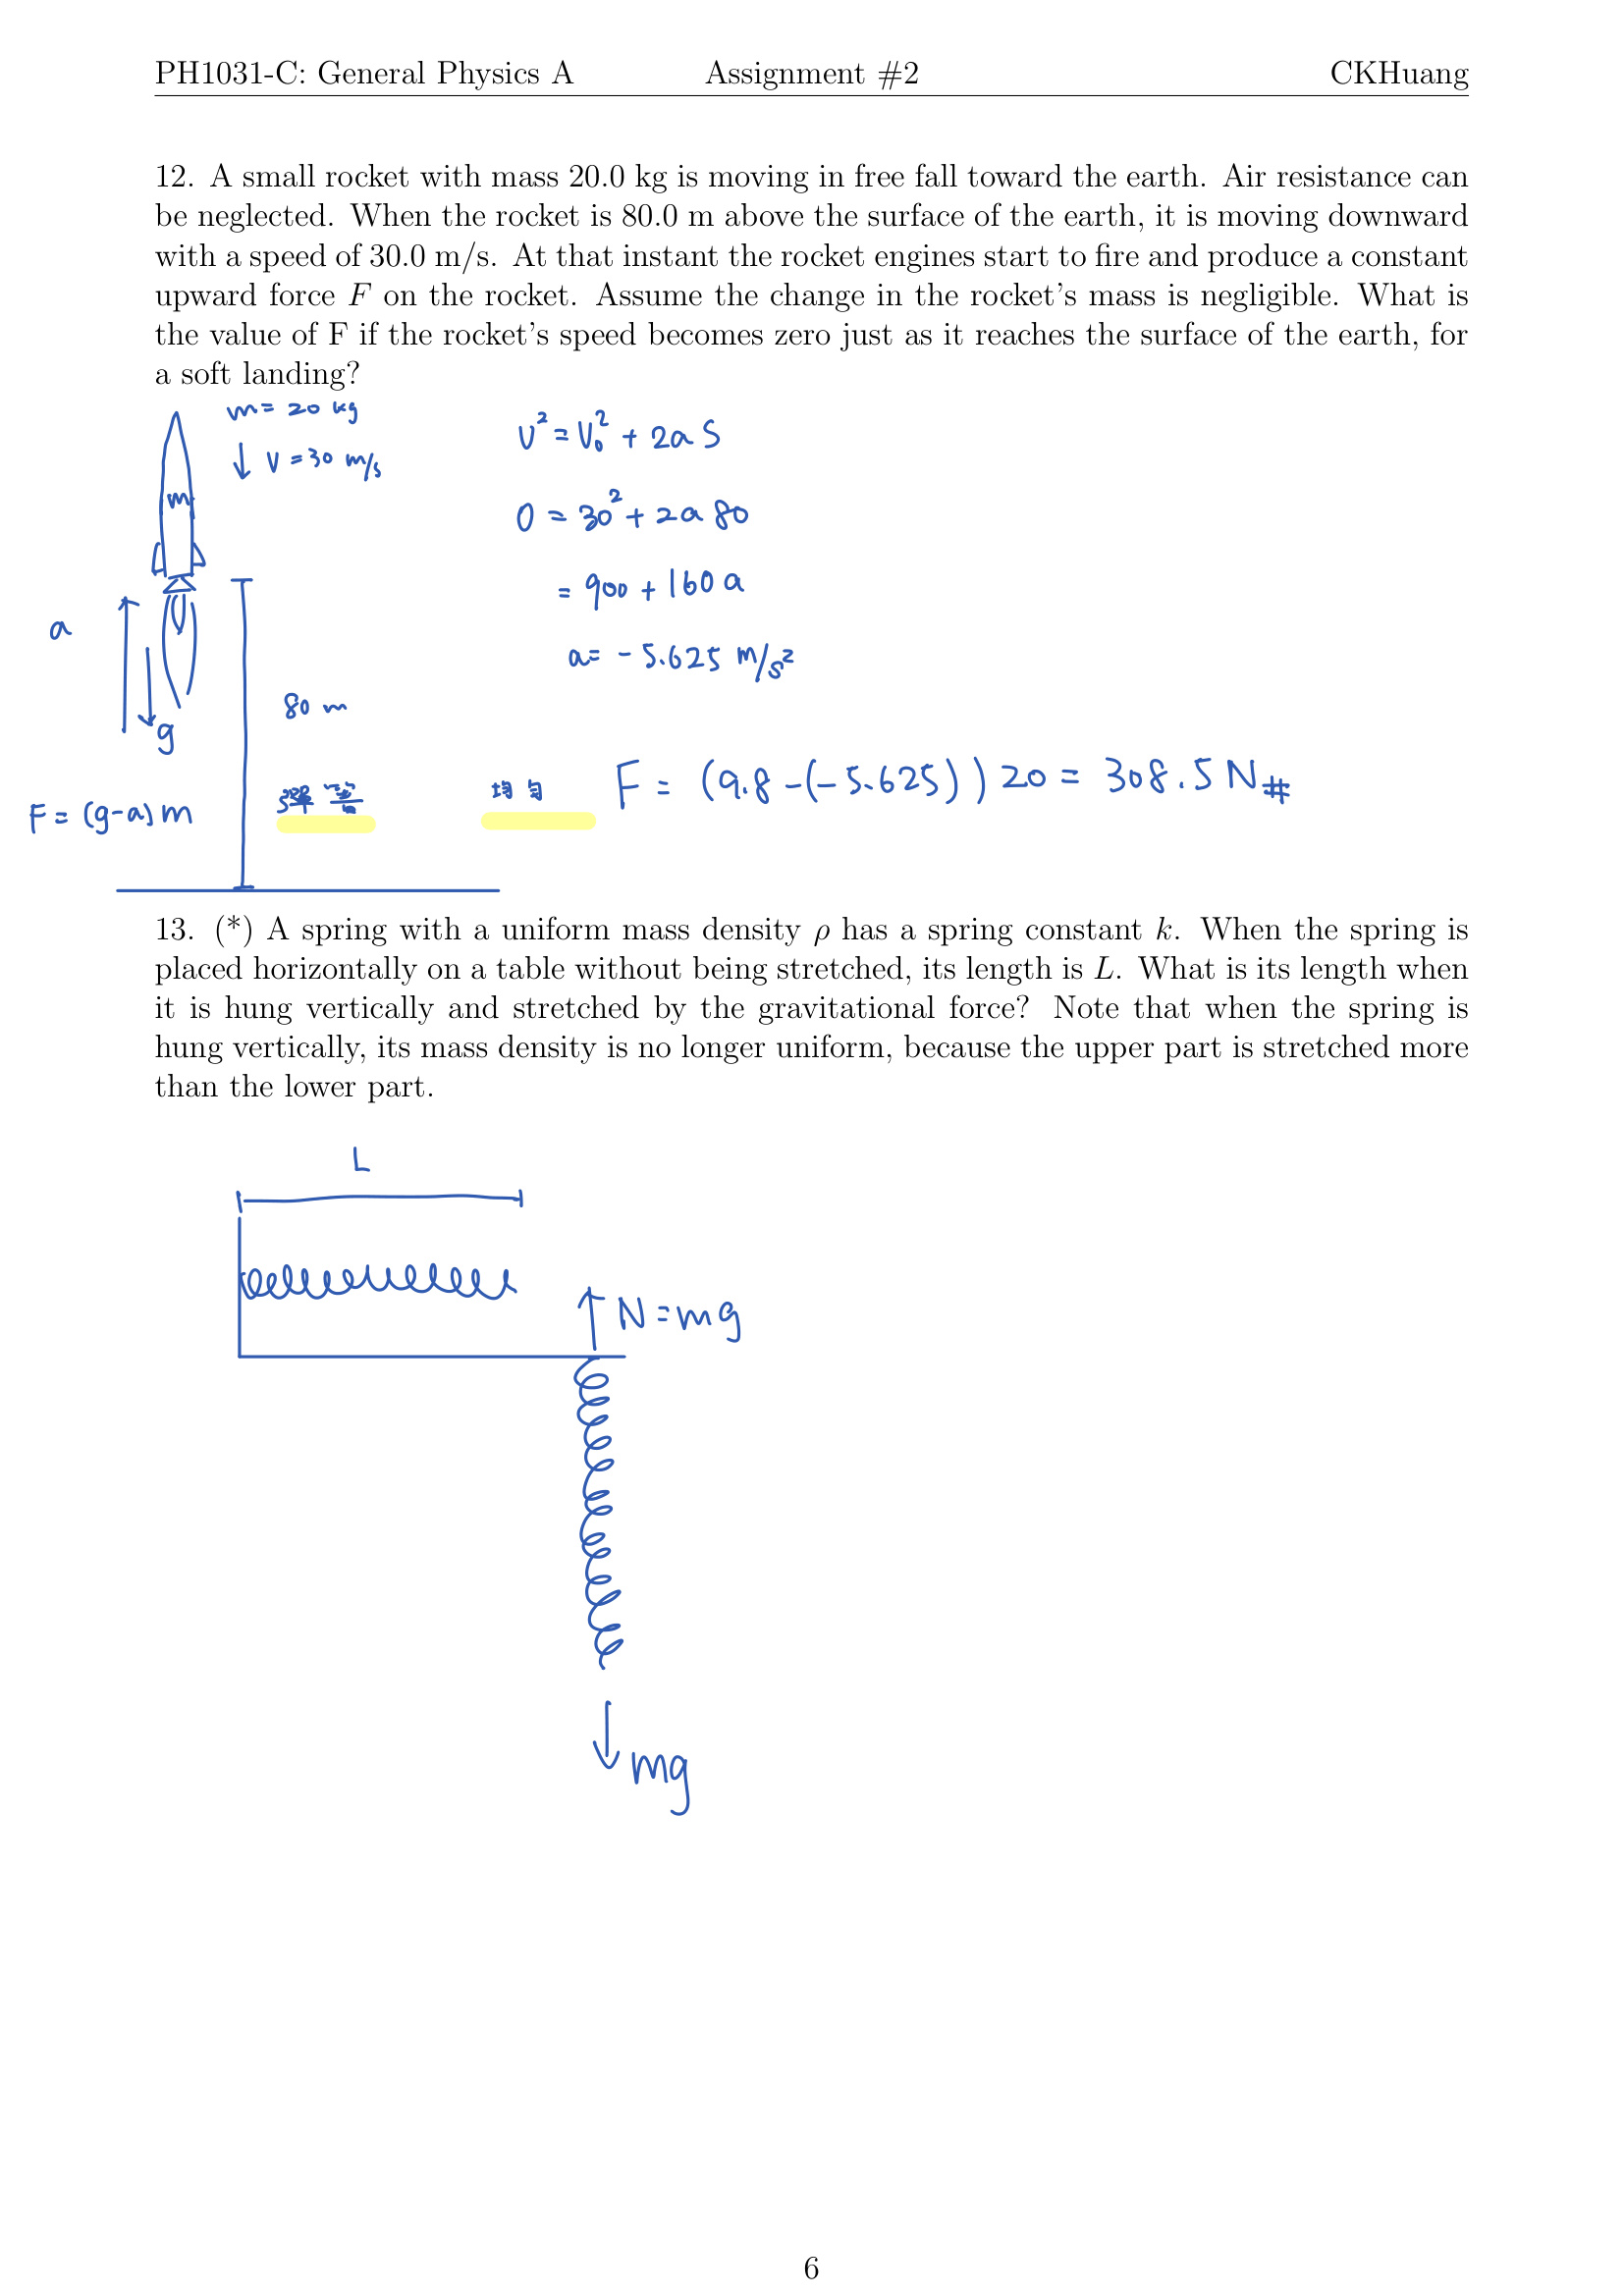 PH1031-C: General Physics A Assignment #2 CKHuang
12. A small rocket with mass 20.0 kg is moving in free fall toward the earth. Air resistance can
be neglected. When the rocket is 80.0 m above the surface of the earth, it is moving downward
with a speed of 30.0 m/s. At that instant the rocket engines start to fire and produce a constant
upward force F on the rocket. Assume the change in the rocket's mass is negligible. What is
the value of F if the rocket's speed becomes zero just as it reaches the surface of the earth, for
a soft landing?
m = 20 kg
↓ v = 30 m/s
m
a
g
80 m
F = (g-a) m
v² = v₀² + 2a S
0 = 30² + 2a 80
= 900 + 160 a
a = - 5.625 m/s²
彈簧
均勻
F = (9.8 - (-5.625)) 20 = 308.5 N #
13. (*) A spring with a uniform mass density ρ has a spring constant k. When the spring is
placed horizontally on a table without being stretched, its length is L. What is its length when
it is hung vertically and stretched by the gravitational force? Note that when the spring is
hung vertically, its mass density is no longer uniform, because the upper part is stretched more
than the lower part.
L
↑ N = mg
↓ mg
6